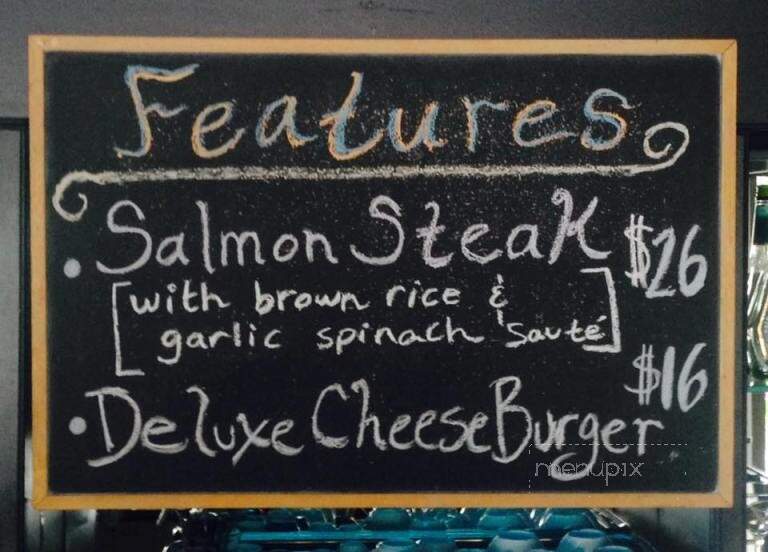 Features
• Salmon SteaK $26
[with brown rice &
garlic spinach sauté]
$16
• Deluxe CheeseBurger
menupix